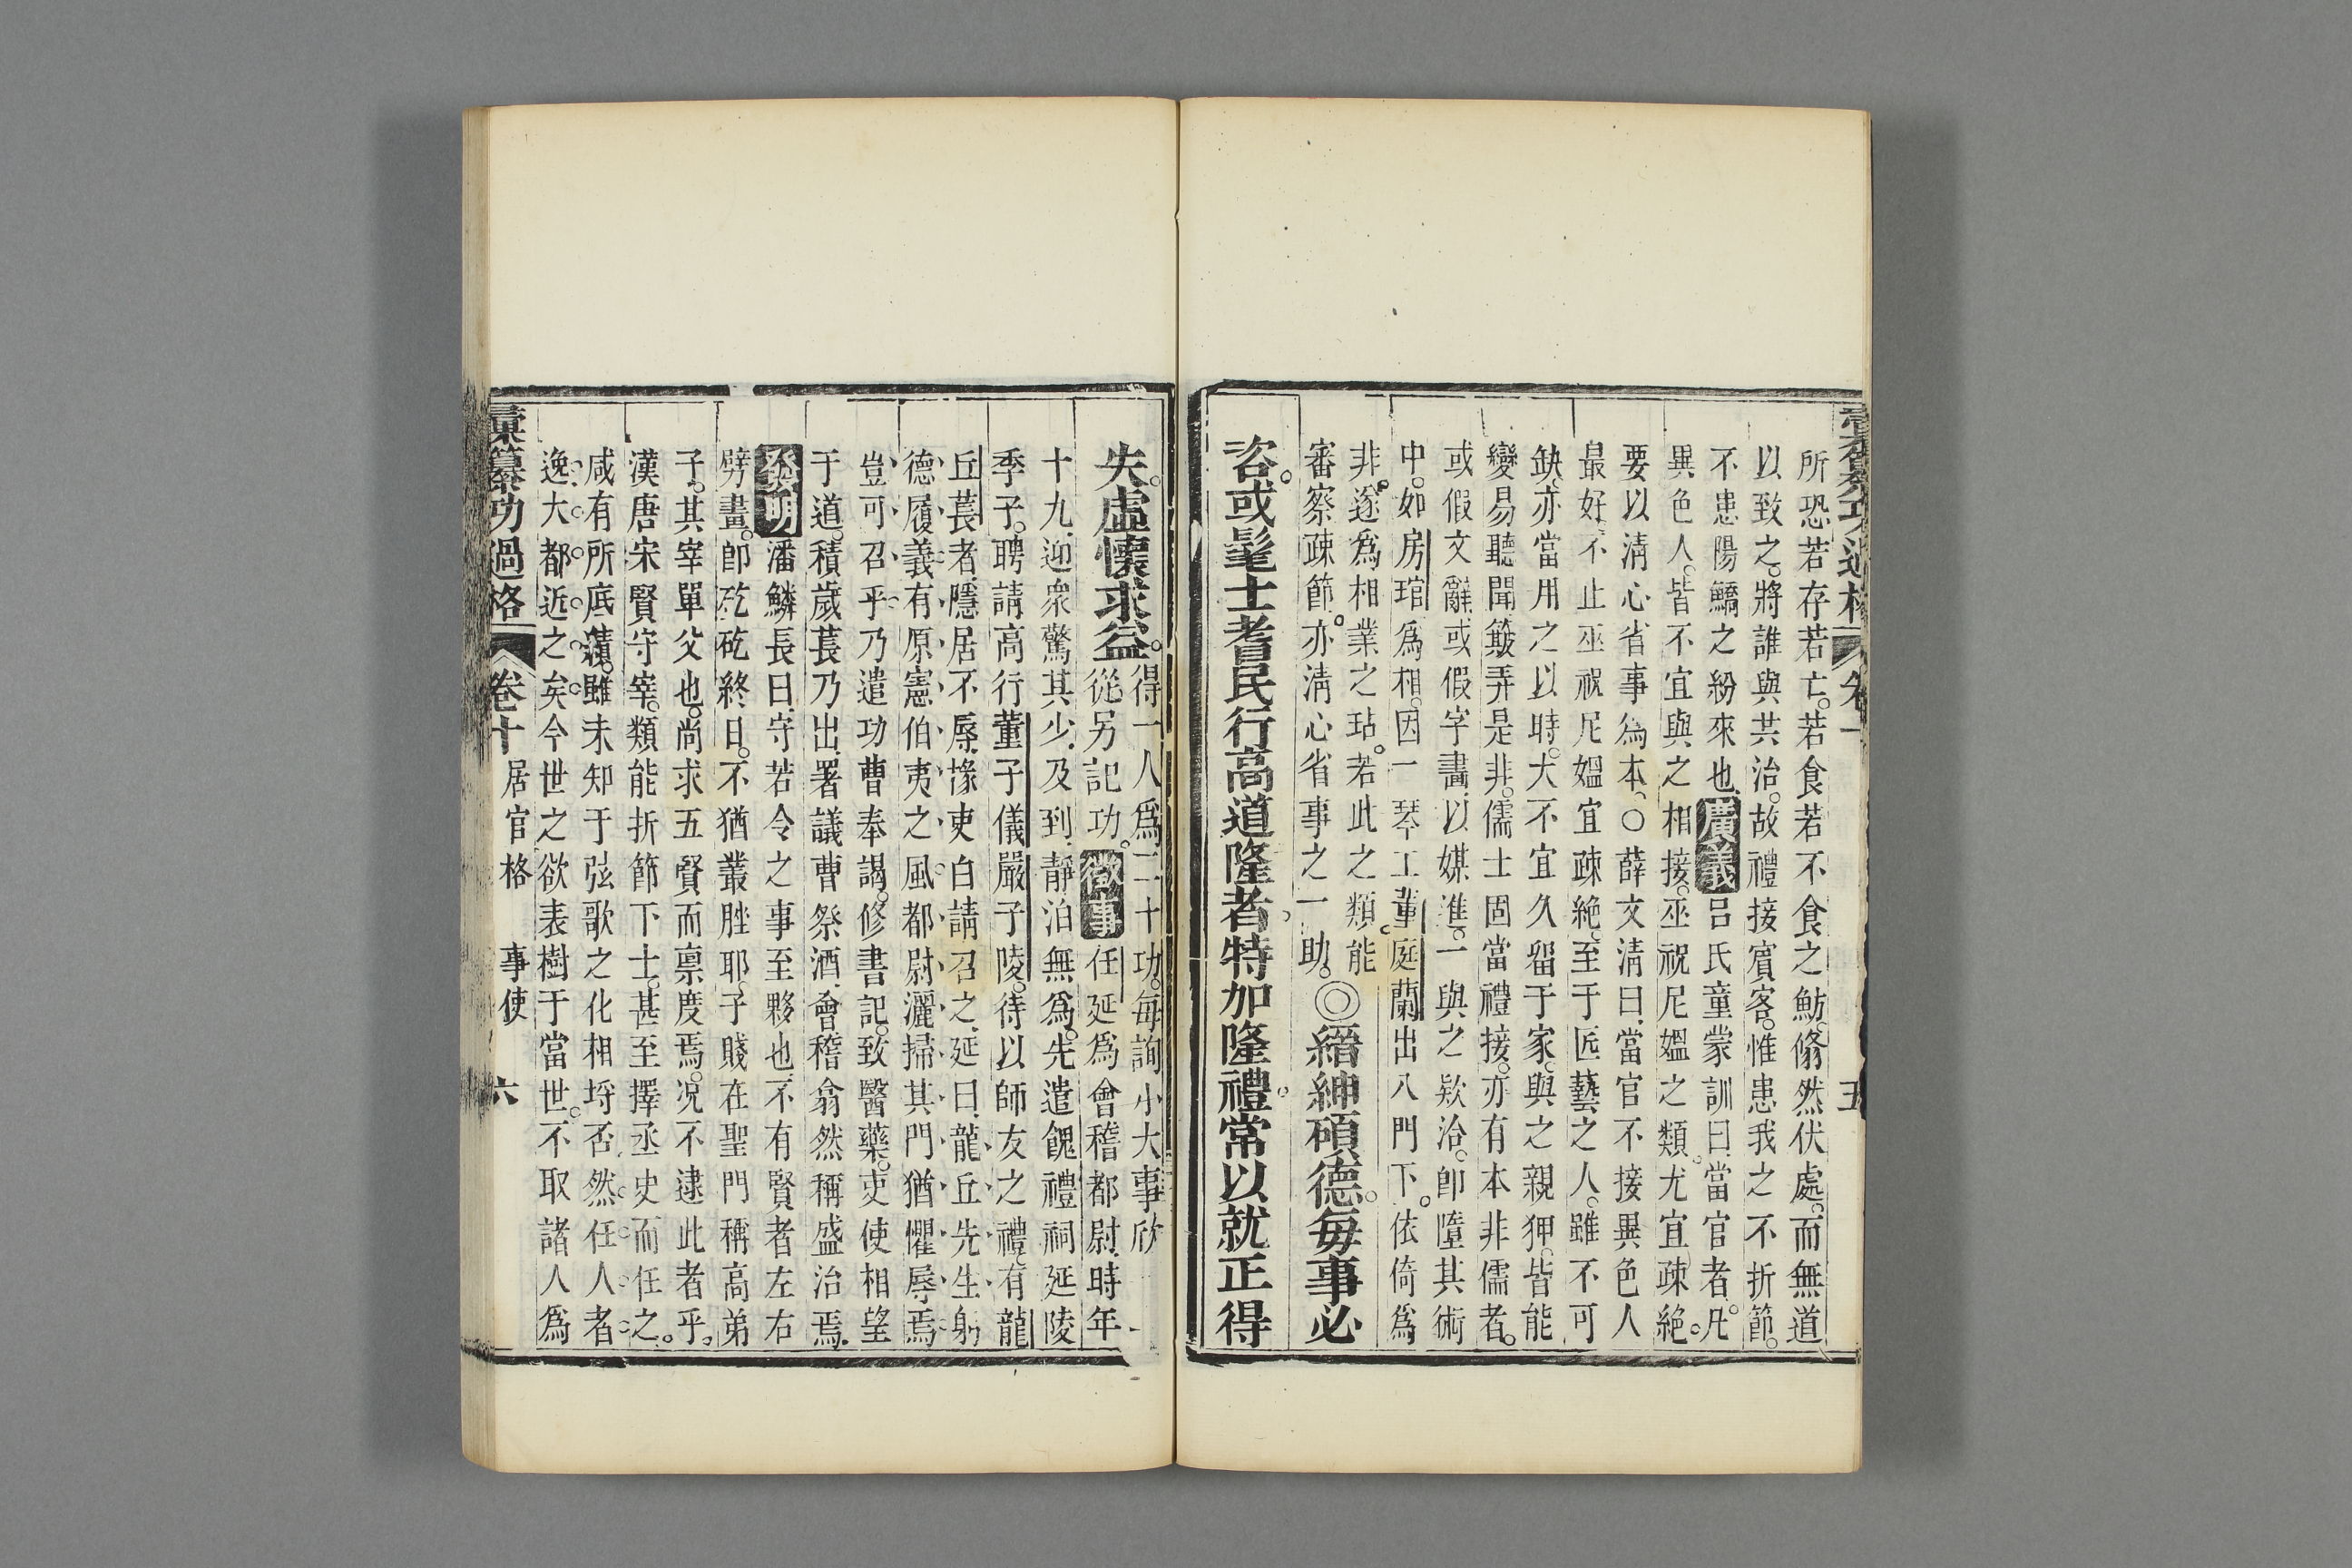 所恐若存若亡。若食若不食之魴。翛然伏處。而無道
以致之。將誰與共治。故禮接賓客。惟患我之不折節。
不患陽鱎之紛來也。廣義呂氏童蒙訓曰。當官者。凡
異色人。皆不宜與之相接。巫祝尼媼之類。尤宜疎絶。
要以清心省事為本。○薛文清曰。當官不接異色人
最好。不止巫祝尼媼宜疎絶。至于匠藝之人。雖不可
缺。亦當用之以時。大不宜久留于家。與之親狎。皆能
變易聽聞。簸弄是非。儒士固當禮接。亦有本非儒者。
或假文辭。或假字畫。以媒進。一與之欵洽。卽墮其術
中。如房琯為相。因一琴工董庭蘭出入門下。依倚為
非。遂為相業之玷。若此之類。能
審察疎節。亦清心省事之一助。◎縉紳碩德。每事必
咨。或髦士耆民行高道隆者。特加隆禮。常以就正得
失。虛懷求益。得一人為二十功。每詢小大事欣
從另記功。徵事任延為會稽都尉。時年
十九。迎衆驚其少。及到。靜泊無為。先遣餽禮祠延陵
季子。聘請高行董子儀嚴子陵。待以師友之禮。有龍
丘萇者。隱居不辱。掾吏白請召之。延曰。龍丘先生躬
德履義。有原憲伯夷之風。都尉灑掃其門。猶懼辱焉。
豈可召乎。乃遣功曹奉謁。修書記。致醫藥。吏使相望
于道。積歲。萇乃出。署議曹祭酒。會稽翕然稱盛治焉。
發明潘鱗長曰。守若令之事至夥也。不有賢者左右
劈畫。卽矻矻終日。不猶叢脞耶。子賤在聖門稱高弟
子。其宰單父也。尚求五賢而禀度焉。况不逮此者乎。
漢唐宋賢守宰。類能折節下士。甚至擇丞史而任之。
咸有所底績。雖未知于弦歌之化相埒否。然任人者
逸。大都近之矣。今世之欲表樹于當世。不取諸人為
彙纂功過格 卷十 居官格 事使 六